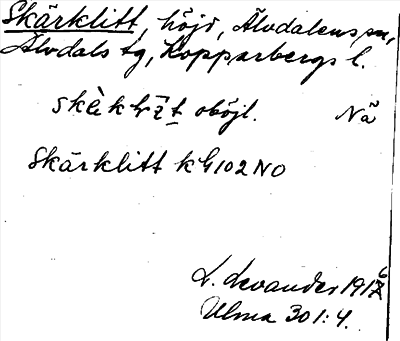 Skärklitt, höjd, Älvdalens sn,
Älvdals tg, Kopparbergs l.
oböjl. Nä
Skärklitt k G102NO
L. Levander 1916
Ulma 301:4.